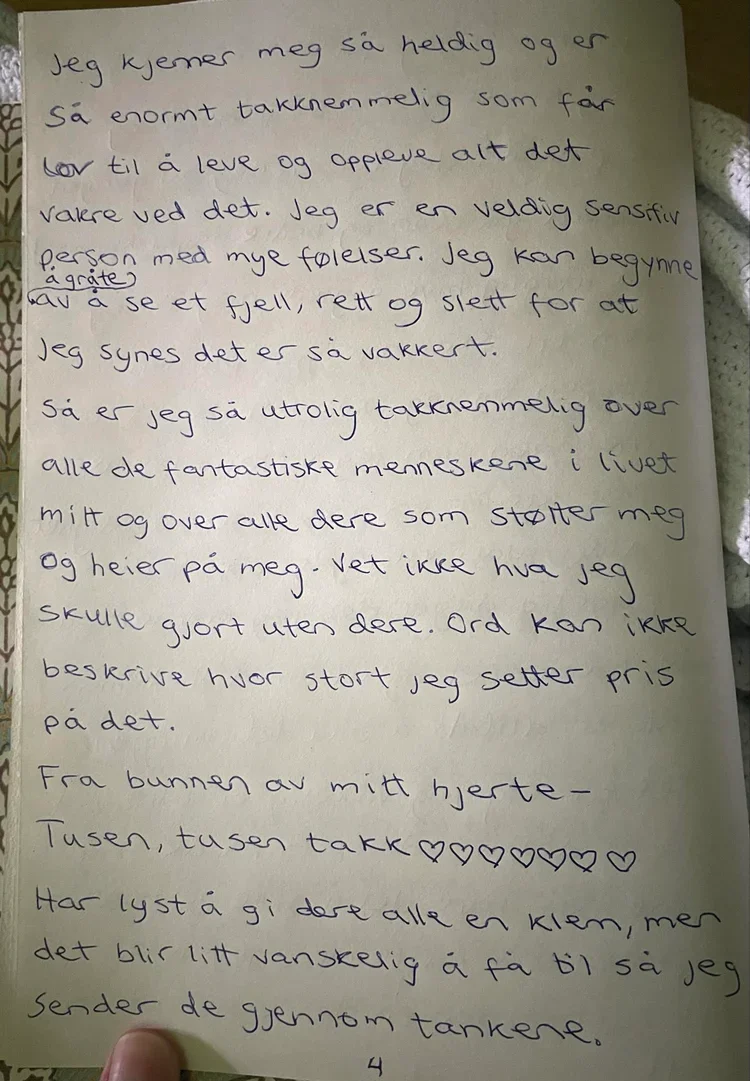 Jeg kjenner meg så heldig og er
så enormt takknemmelig som får
lov til å leve og oppleve alt det
vakre ved det. Jeg er en veldig sensitiv
person med mye følelser. Jeg kan begynne
å gråte
av å se et fjell, rett og slett for at
jeg synes det er så vakkert.
Så er jeg så utrolig takknemmelig over
alle de fantastiske menneskene i livet
mitt og over alle dere som støtter meg
og heier på meg. Vet ikke hva jeg
skulle gjort uten dere. Ord kan ikke
beskrive hvor stort jeg setter pris
på det.
Fra bunnen av mitt hjerte –
Tusen, tusen takk ♡♡♡♡♡♡♡
Har lyst å gi dere alle en klem, men
det blir litt vanskelig å få til så jeg
sender de gjennom tankene.
4